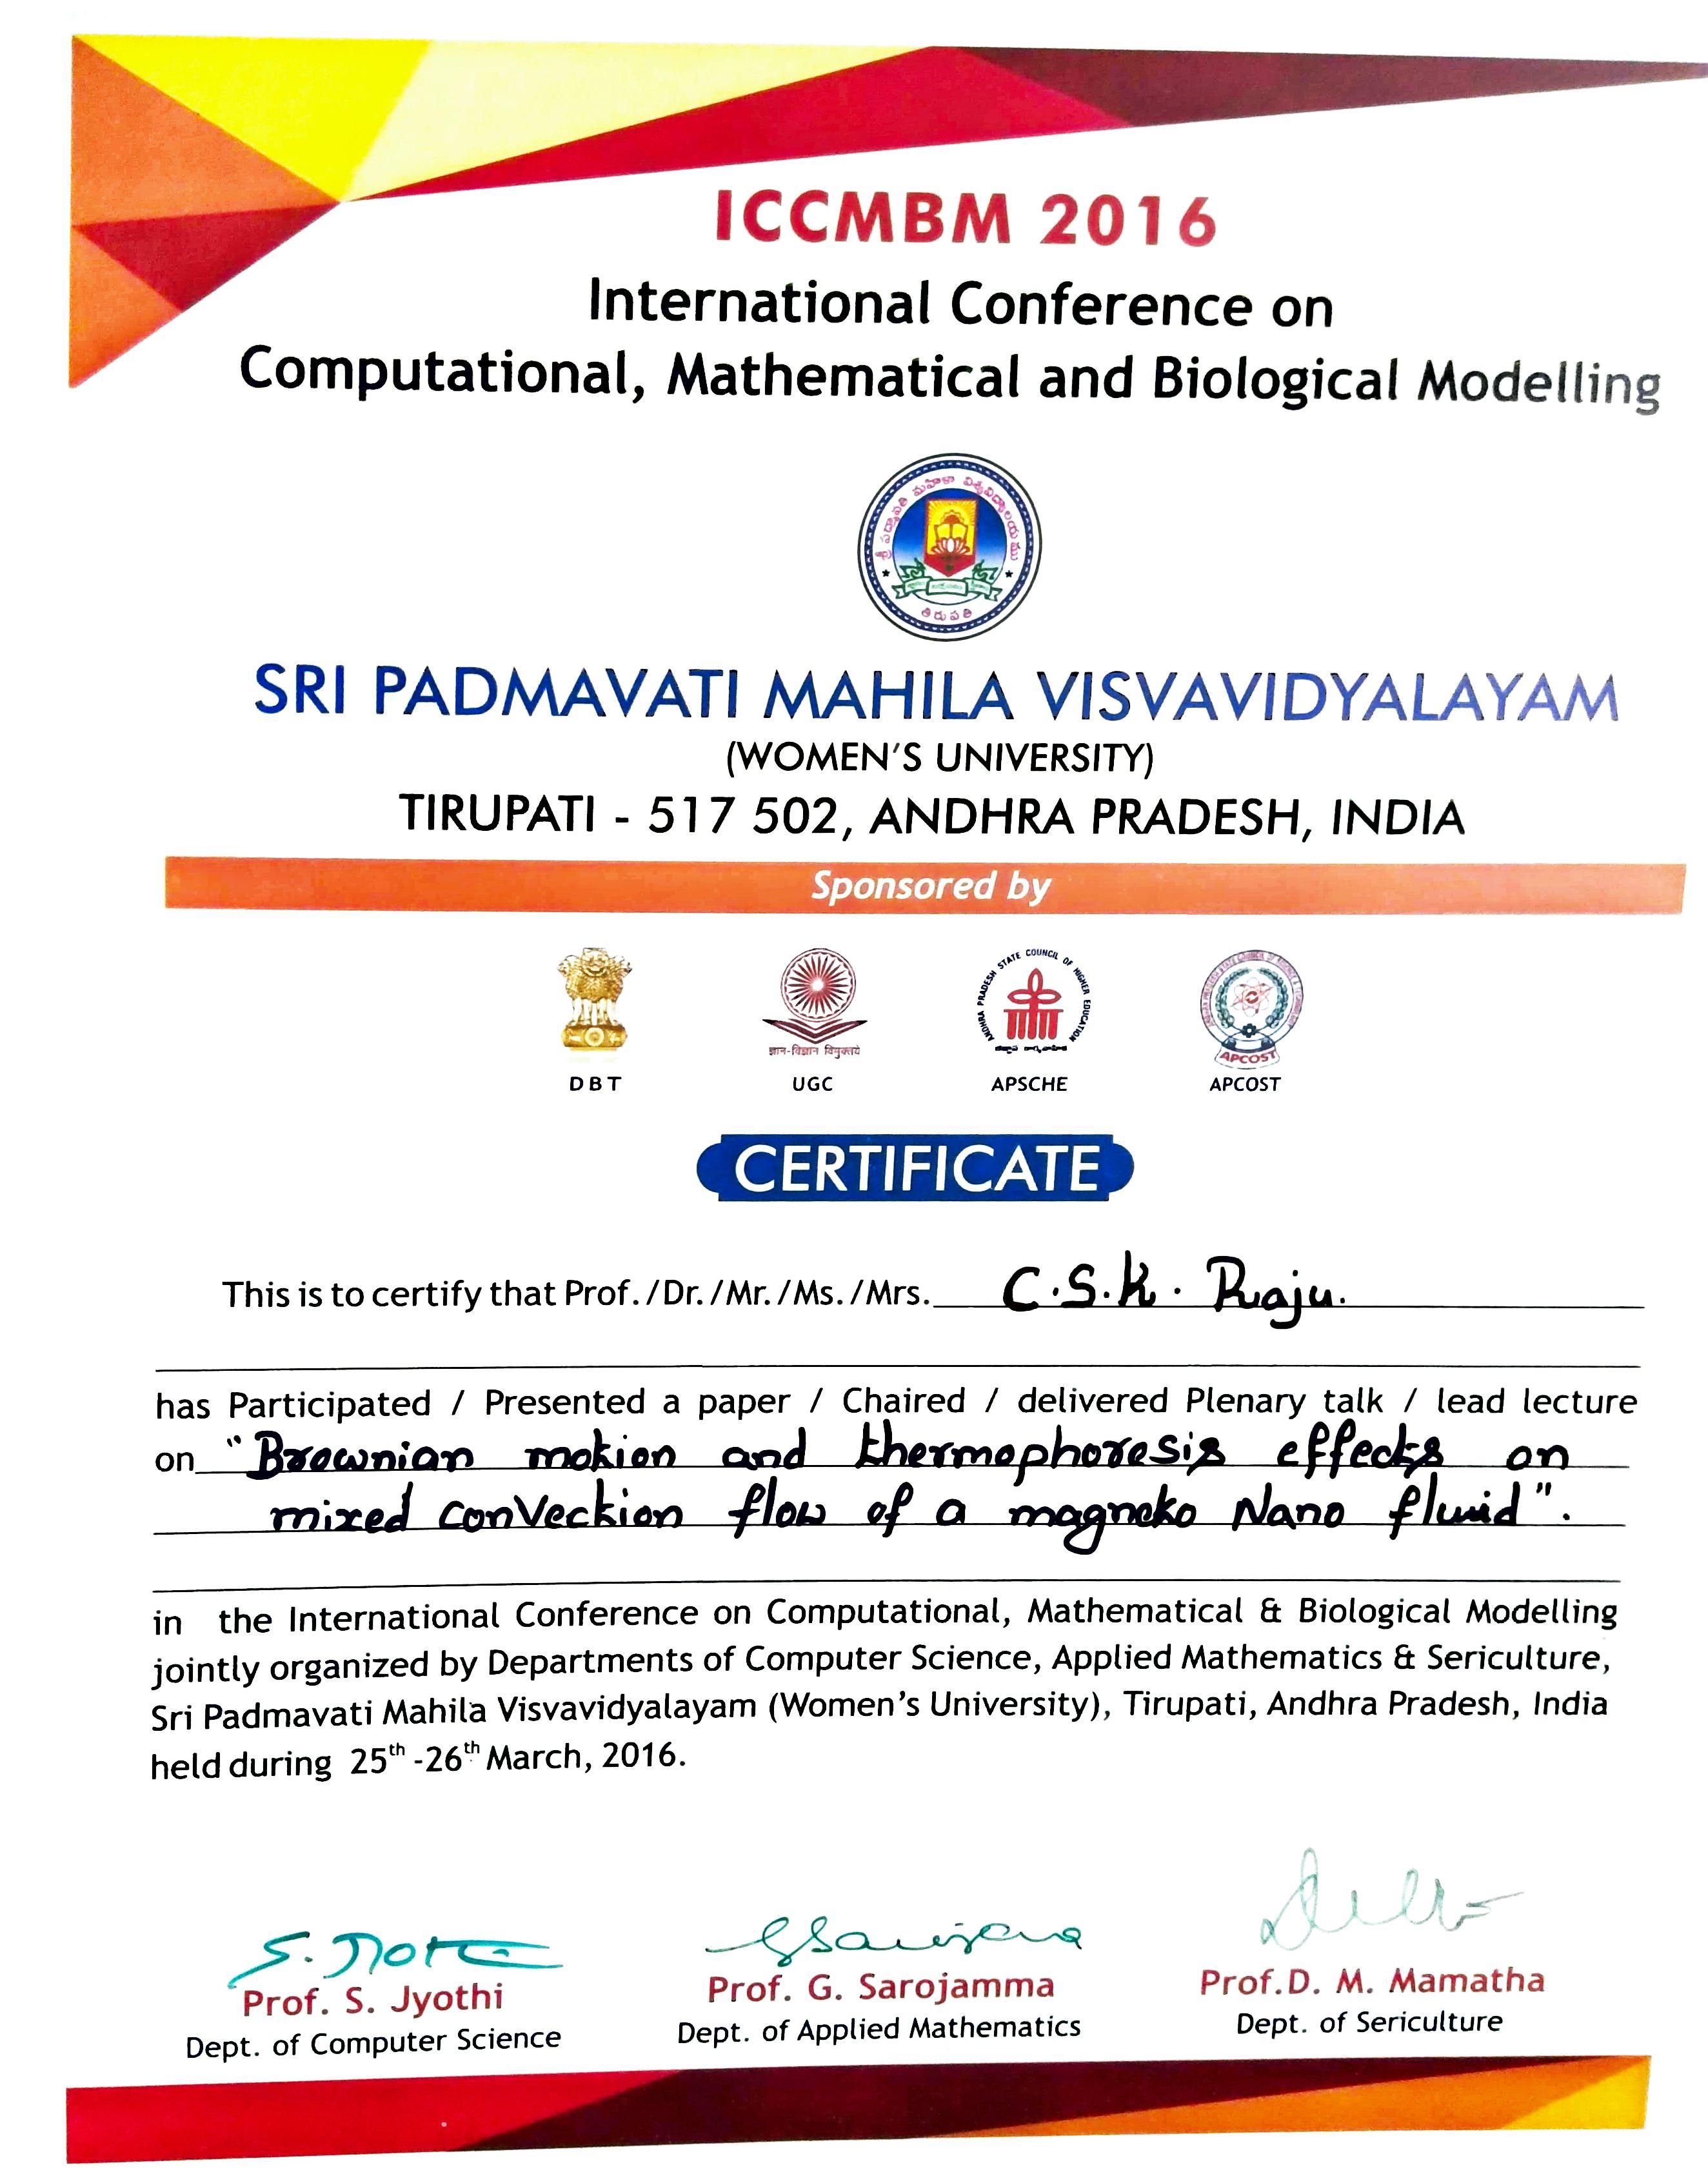 ICCMBM 2016
International Conference on
Computational, Mathematical and Biological Modelling
శ్రీ పద్మావతి మహిళా విశ్వవిద్యాలయము
తిరుపతి
SRI PADMAVATI MAHILA VISVAVIDYALAYAM
(WOMEN'S UNIVERSITY)
TIRUPATI - 517 502, ANDHRA PRADESH, INDIA
Sponsored by
ANDHRA PRADESH STATE COUNCIL OF HIGHER EDUCATION
ज्ञान-विज्ञान विमुक्तये
APCOST
DBT UGC APSCHE APCOST
CERTIFICATE
This is to certify that Prof./Dr./Mr./Ms./Mrs. C.S.K. Raju.
has Participated / Presented a paper / Chaired / delivered Plenary talk / lead lecture
on "Brownian motion and thermophoresis effects on
mixed conVection flow of a magneto Nano fluid".
in the International Conference on Computational, Mathematical & Biological Modelling
jointly organized by Departments of Computer Science, Applied Mathematics & Sericulture,
Sri Padmavati Mahila Visvavidyalayam (Women's University), Tirupati, Andhra Pradesh, India
held during 25th -26th March, 2016.
Prof. S. Jyothi Prof. G. Sarojamma Prof.D. M. Mamatha
Dept. of Computer Science Dept. of Applied Mathematics Dept. of Sericulture